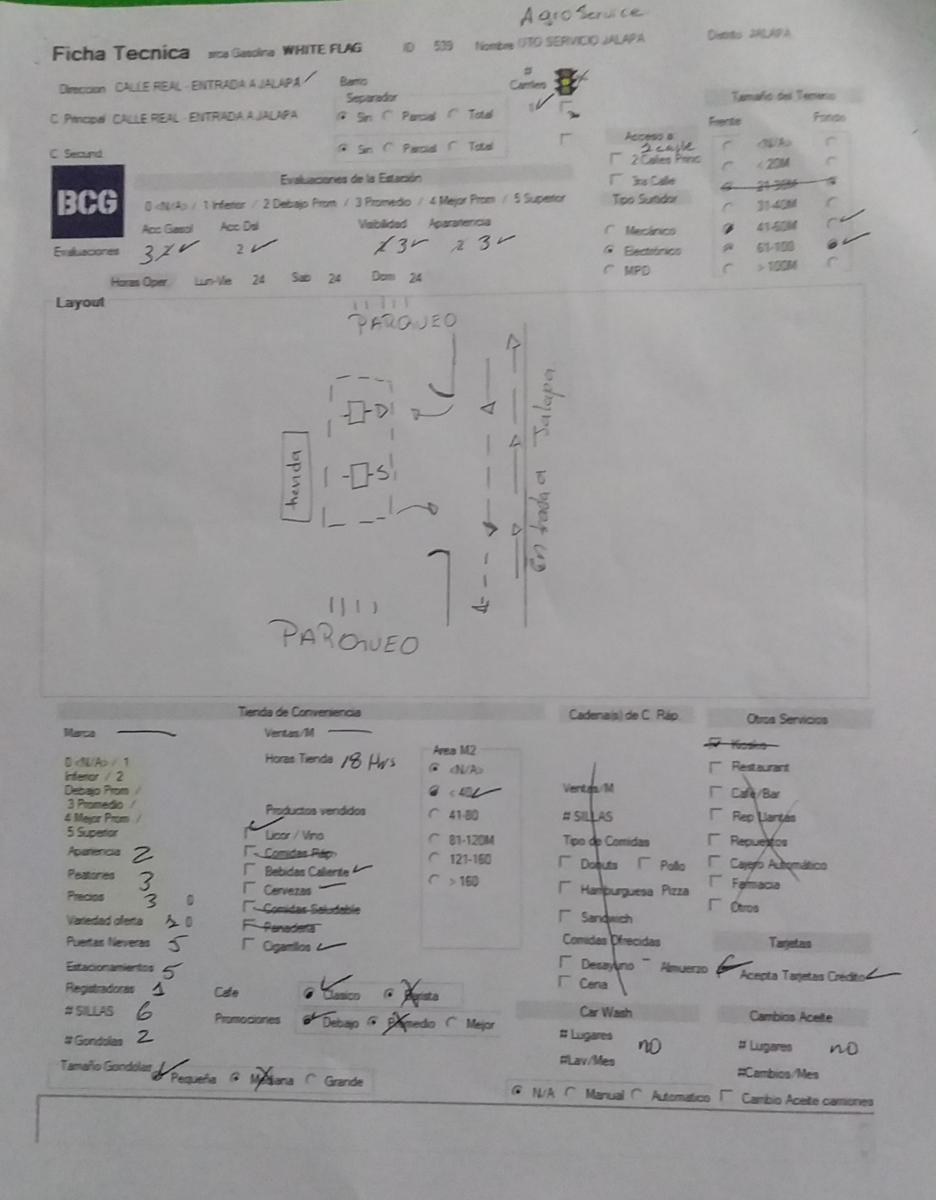 AgroService
Ficha Tecnica arca Gasolina WHITE FLAG ID 539 Nombre UTO SERVICIO JALAPA Distrito JALAPA
Direccion CALLE REAL - ENTRADA A JALAPA Barrio # Carriles
C Principal CALLE REAL - ENTRADA A JALAPA Separador
Sin Parcial Total
C Secund Sin Parcial Total
Acceso a
2 Calles Princ
3ra Calle
Tamaño del Terreno
Frente Fondo
<N/A>
< 20M
21-30M
31-40M
41-60M
61-100
> 100M
Tipo Surtidor
Mecánico
Electrónico
MPD
BCG
Evaluaciones de la Estación
0 <N/A> / 1 Inferior / 2 Debajo Prom / 3 Promedio / 4 Mejor Prom / 5 Superior
Acc Gasol Acc Dsl Visibilidad Aparatencia
Evaluaciones 3 2 2 3 2 3
Horas Oper. Lun-Vie 24 Sab 24 Dom 24
Layout
PARQUEO
D
S
tienda
Entrada a Jalapa
PARQUEO
Tienda de Conveniencia
Marca Ventas/M
Horas Tienda 18 Hrs
0 <N/A> / 1
Inferior / 2
Debajo Prom /
3 Promedio /
4 Mejor Prom /
5 Superior
Apariencia 2
Peatones 3
Precios 3 0
Variedad oferta 0
Puertas Neveras 5
Estacionamientos 5
Registradoras 1
# SILLAS 6
# Gondolas 2
Tamaño Gondolas Pequeña Mediana Grande
Productos vendidos
Licor / Vino
Comidas Ráp
Bebidas Caliente
Cervezas
Comidas Saludable
Panaderia
Cigarrillos
Cafe Clasico Barista
Promociones Debajo Promedio Mejor
Area M2
<N/A>
< 40
41-80
81-120M
121-160
> 160
Cadena(s) de C. Ráp.
Ventas/M
# SILLAS
Tipo de Comidas
Donuts Pollo
Hamburguesa Pizza
Sandwich
Comidas Ofrecidas
Desayuno Almuerzo
Cena
Otros Servicios
Kiosko
Restaurant
Café/Bar
Rep Llantas
Repuestos
Cajero Automático
Farmacia
Otros
Tarjetas
Acepta Tarjetas Crédito
Car Wash
# Lugares no
#Lav/Mes
N/A Manual Automatico
Cambios Aceite
# Lugares no
#Cambios/Mes
Cambio Aceite camiones